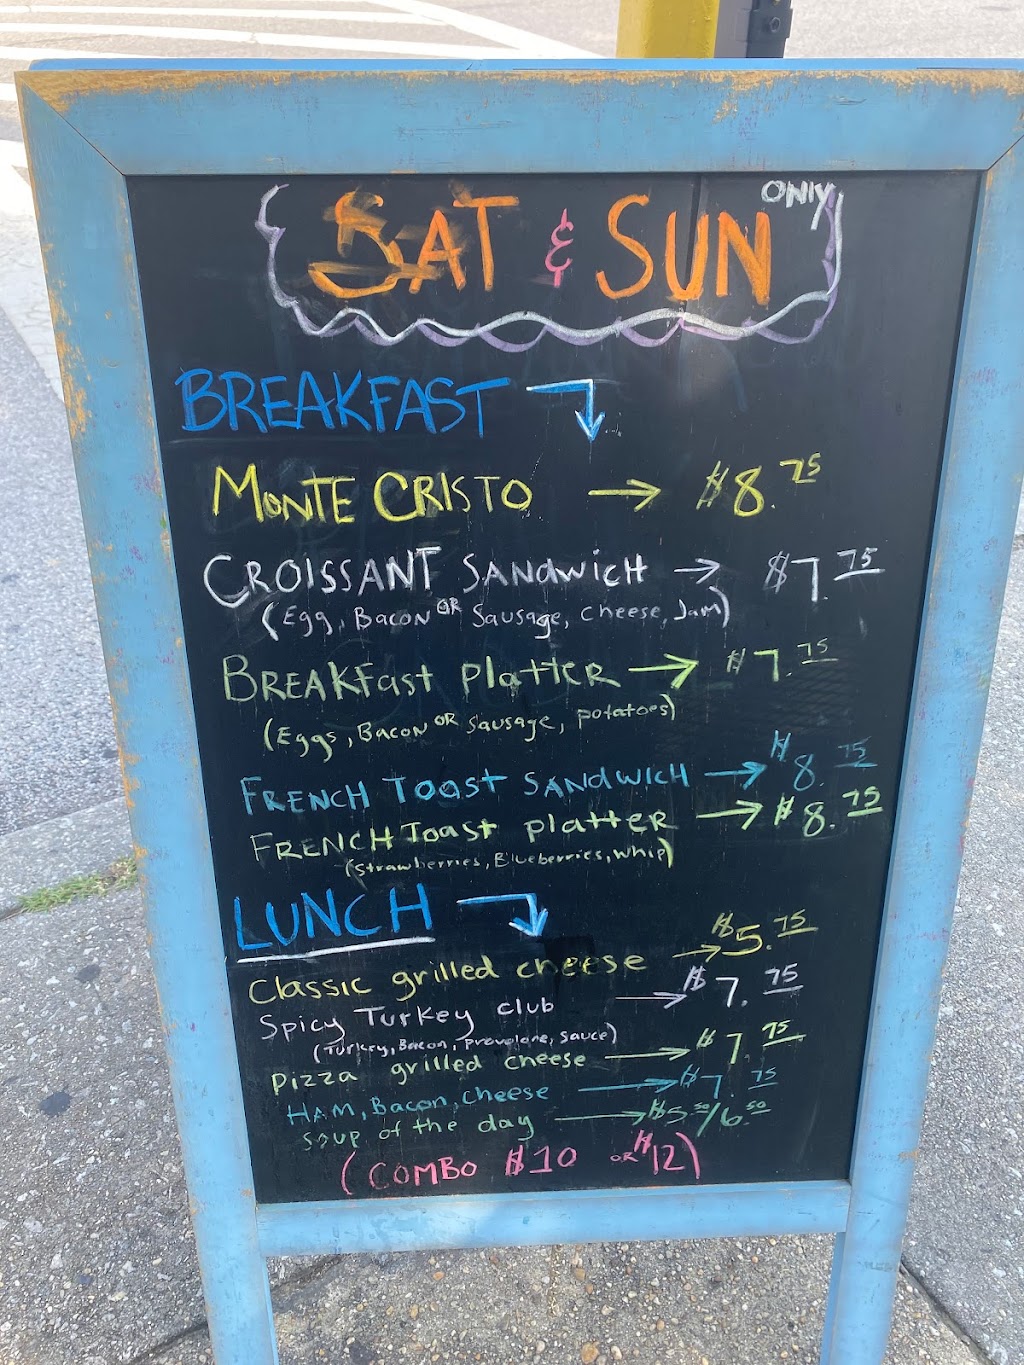 SAT & SUN ONly
BREAKFAST
MONTE CRISTO $8.75
CROISSANT SANDWICH $7.75
(Egg, BACON OR Sausage, cheese, Jam)
BREAKFast Platter $7.75
(Eggs, BACON OR Sausage, potatoes)
FRENCH Toast SANDWICH $8.75
FRENCH Toast platter $8.75
(Strawberries, Blueberries, whip)
LUNCH
Classic grilled cheese $5.75
Spicy Turkey club $7.75
(Turkey, Bacon, Provolone, Sauce)
Pizza grilled cheese $7.75
HAM, Bacon, cheese $7.75
Soup of the day $5.50/6.50
(COMBO $10 OR $12)